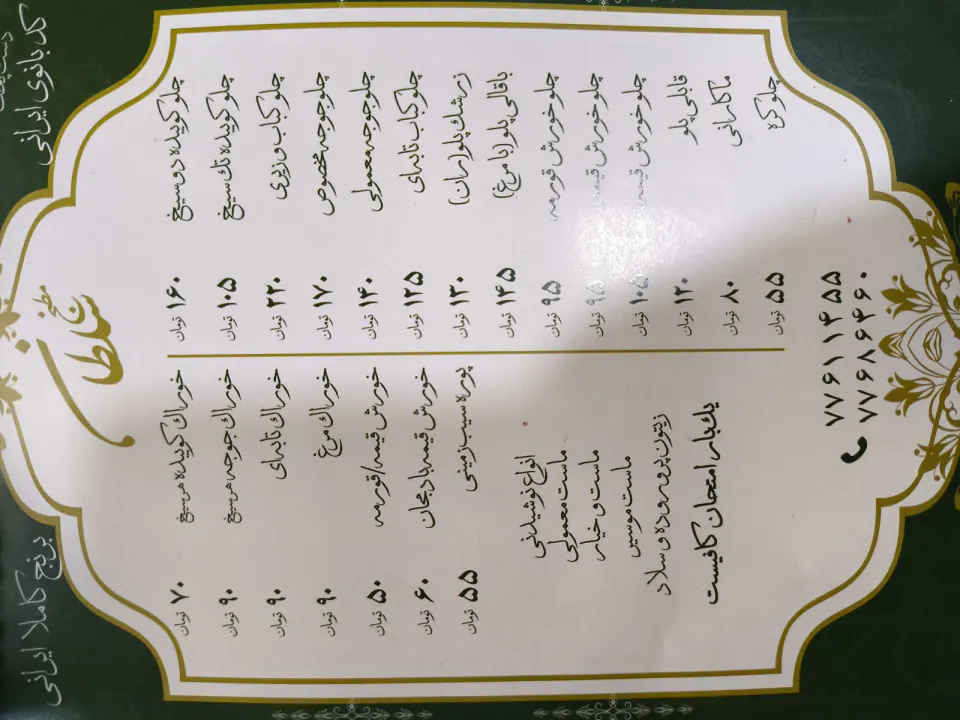 دست پخت
کد بانوی ایرانی
برنج کاملا ایرانی
مطبخ
سلطان
چلو کوبیده دو سیخ ۱۶۰ تومان
چلو کوبیده تک سیخ ۱۰۵ تومان
چلو کباب وزیری ۲۲۰ تومان
چلو جوجه مخصوص ۱۷۰ تومان
چلو جوجه معمولی ۱۴۰ تومان
چلو کباب تابه ای ۱۲۵ تومان
زرشک پلو (ران) ۱۳۰ تومان
باقالی پلو (با مرغ) ۱۴۵ تومان
چلو خورش قورمه ۹۵ تومان
چلو خورش قیمه ۹۵ تومان
چلو خورش قیمه ۱۰۵ تومان
قابلی پلو ۱۲۰ تومان
ماکارانی ۸۰ تومان
چلو کره ۵۵ تومان
خوراک کوبیده هر سیخ ۷۰ تومان
خوراک جوجه هر سیخ ۹۰ تومان
خوراک تابه ای ۹۰ تومان
خوراک مرغ ۹۰ تومان
خورش قیمه/قورمه ۵۰ تومان
خورش قیمه بادمجان ۶۰ تومان
پوره سیب زمینی ۵۵ تومان
انواع نوشیدنی
ماست معمولی
ماست و خیار
ماست موسیر
زیتون پرورده و سالاد
یک بار امتحان کافیست
۷۷۶۱۱۴۵۵
۷۷۶۸۶۴۶۰